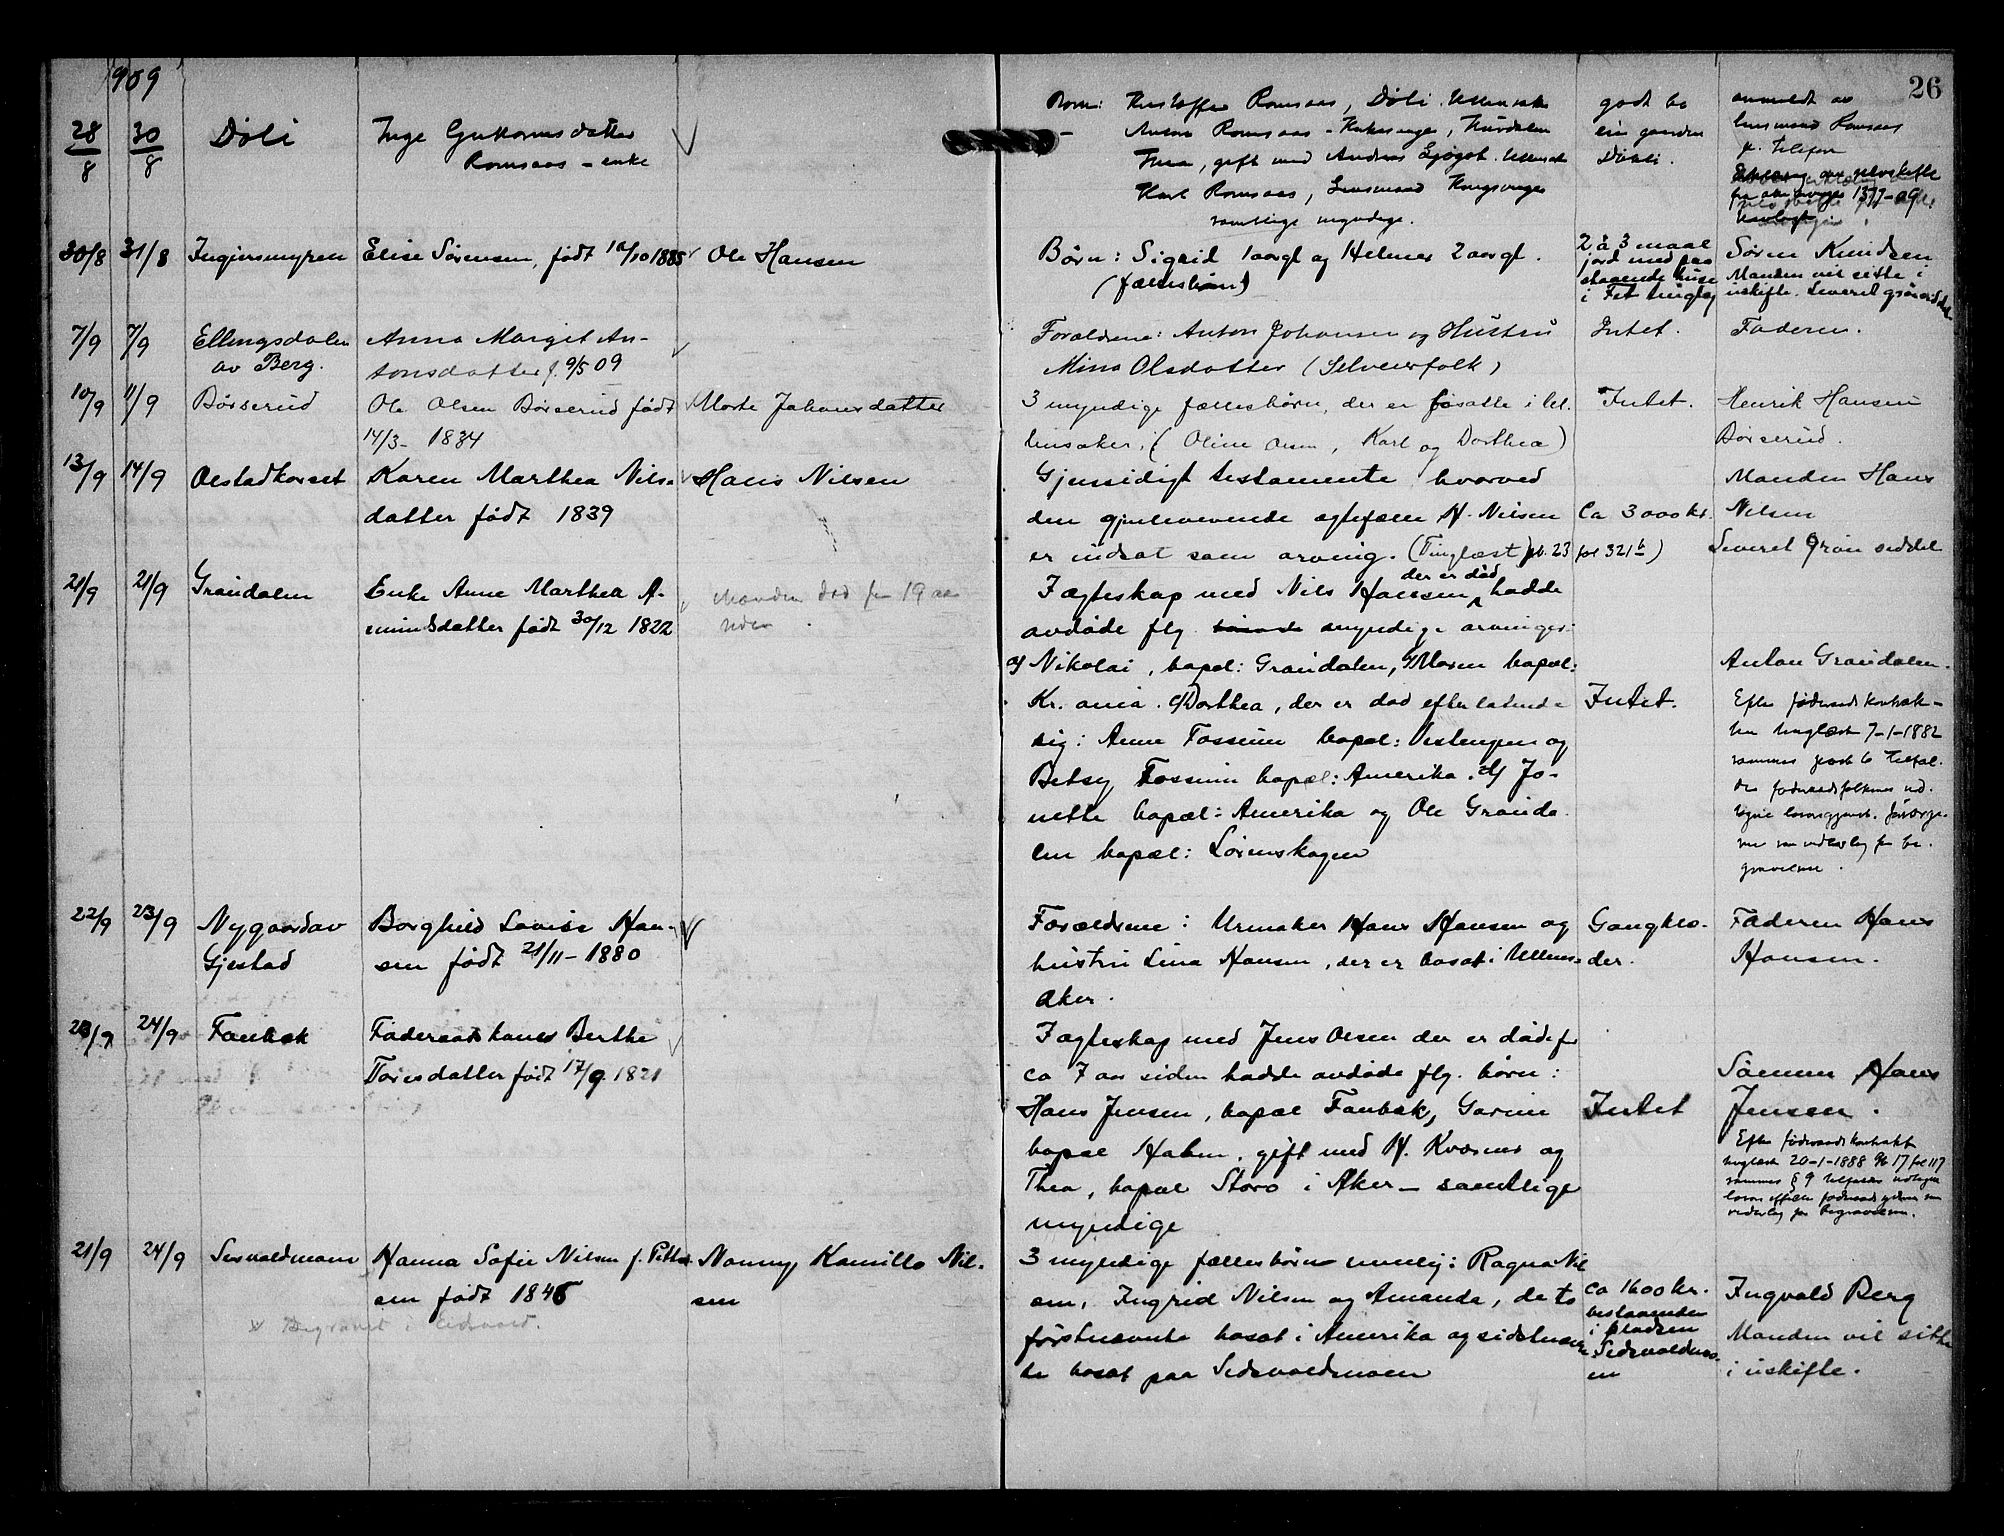 1909
26
28/8 30/8 Døli Inge Guttormsdatter
Romsaas - enke
Børn: Kristoffer Romsaas, Døli. Ullensaker
Anton Romsaas - Hurdalen
Thea, gift med Andreas
Karl Romsaas, Lensmand Kongsvinger
samtlige myndige.
godt bo
ein gaarden
Døli.
anmeldt av
lensmand Romsaas
pr. telefon
30/8 31/8 Elise Sørensen, født 12/10 1885 Ole Hansen
Børn: Sigrid 1 aargl og Helmer 2 aargl.
(fællesbørn)
2 à 3 maal
jord med paa
staaende huse
i Fet tinglag
Søren Knudsen
Manden vil sitte i
uskifte. Leveret grøn seddel
7/9 7/9 Ellingsdalen
av Berg.
Anna Margit An-
tonsdatter f. 9/5 09
Forældrene: Anton Johansen og Hustru
Mina Olsdatter (Selveierfolk)
Intet.
Faderen.
10/9 11/9 Børserud Ole Olsen Børserud født
14/3 - 1834
Marte Johansdatter
3 myndige fællesbørn, der er bosatte i Ul-
lensaker, (Oline Olsen, Karl og Dorthea)
Intet.
Henrik Hansen
Børserud.
13/9 14/9 Olstadkorset Karen Marthea Nils-
datter født 1839
Hans Nilsen
Gjensidigt testamente hvorved
den gjenlevende ægtefælle H. Nilsen
er indsat som arving. (Tinglæst pb. 23 fol 321b)
Ca 3000 kr.
Manden Hans
Nilsen
Leveret Grøn seddel
21/9 21/9 Grandalen Enke Anne Marthea A-
mundsdatter født 30/12 1822
Manden død for 19 aar
siden.
I ægteskap med Nils Hansen der er død, hadde
avdøde flg. myndige arvinger:
a/ Nikolai, bopæl: Grandalen, b/ Maren bopæl:
Kr.ania. c/ Dorthea, der er død efterlatende
sig: Anne Fossum bopæl: Vestengen og
Betsy Fossum bopæl: Amerika. d/ Jo-
nette bopæl: Amerika og Ole Granda-
len bopæl: Lørenskogen
Intet.
Anton Grandalen.
Efter føderaadskontrak-
ten tinglæst 7-1-1882
sammes post 6 tilfal.
der føderaadsfolkenes ud.
som vederlag for be-
gravelsen.
22/9 23/9 Nygaard av
Gjestad
Borghild Lovise Han-
sen født 21/11 - 1880
Forældrene: Urmaker Hans Hansen og
hustru Lina Hansen, der er bosat i Ullens-
aker.
Gangklæ-
der.
Faderen Hans
Hansen.
23/9 24/9 Faubæk Føderaadskone Berthe
Toresdatter født 17/9 1821
I ægteskap med Jens Olsen der er døde for
ca 7 aar siden hadde avdøde flg. børn:
Hans Jensen, bopæl Faubæk, Gorine
bopæl Holm, gift med H. Kværner og
Thea, bopæl Storo i Aker - samtlige
myndige
Intet
Sønnen Hans
Jensen.
Efter føderaadskontrakt
tinglæst 20-1-1888 Pb 17 fol 117
sammes § 9 tilfalder
vederlag for begravelsen.
21/9 24/9 Hanna Sofie Nilsen f. Petter-
sen født 1846
x Begravet i Eidsvold.
Nanny Kamillo Nil-
sen
3 myndige fællesbørn nemlig: Ragna Nil
sen, Ingrid Nilsen og Amanda, de to
førstnævnte bosat i Amerika og sidstnævn-
te bosat paa Sedsvoldmoen
Ca 1600 kr.
bestaaende
i pladsen
Sedsvoldmo-
en
Ingvald Berg
Manden vil sitte
i uskifte.